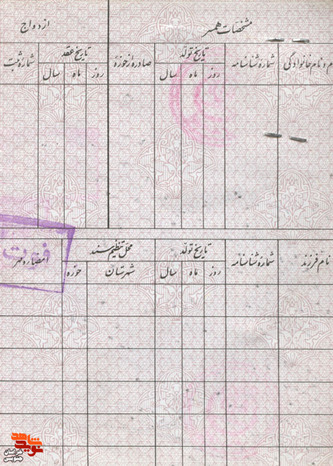 مشخصات همسر
ازدواج
نام و نام خانوادگی
شماره شناسنامه
تاریخ تولد
روز ماه سال
صادره از حوزه
تاریخ عقد
روز ماه سال
شماره ثبت
نام فرزند
شماره شناسنامه
تاریخ تولد
روز ماه سال
محل تنظیم سند
شهرستان
حوزه
امضاء و مهر
فوت
نوید شاهد